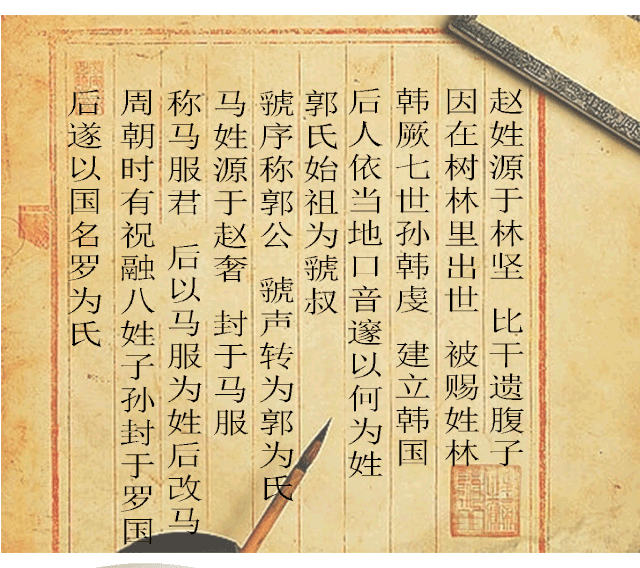 赵姓源于林坚 比干遗腹子
因在树林里出世 被赐姓林
韩厥七世孙韩虔 建立韩国
后人依当地口音邃以何为姓
郭氏始祖为虢叔
虢序称郭公 虢声转为郭为氏
马姓源于赵奢 封于马服
称马服君 后以马服为姓后改马
周朝时有祝融八姓子孙封于罗国
后遂以国名罗为氏